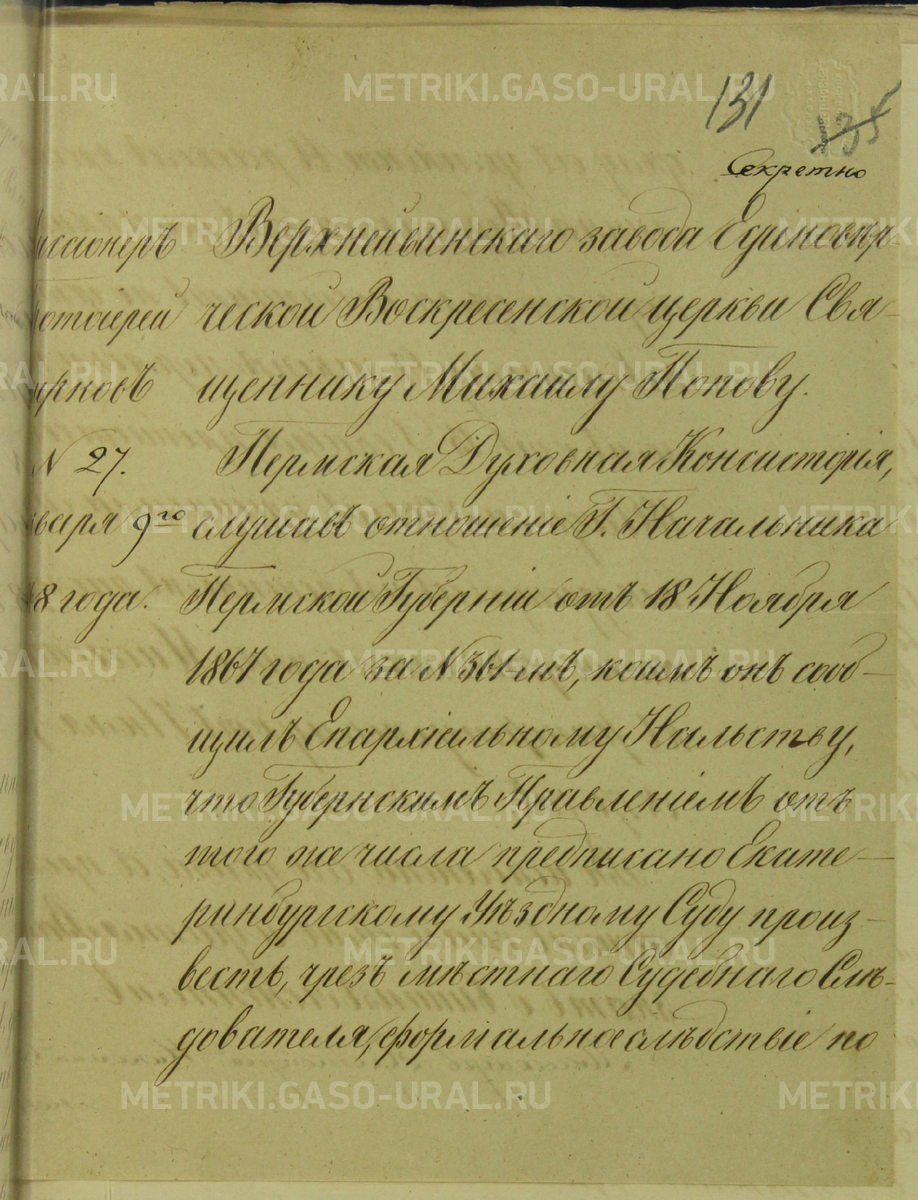 131
35
Секретно
ссіонеръ
отоіерей
рновъ
N 27.
варя 9го
8 года.
Верхнейвинскаго завода Единовѣр-
ческой Воскресенской церкви Свя-
щеннику Михаилу Попову.
Пермская Духовная Консисторія,
слушавъ отношеніе Г. Начальника
Пермской Губерніи отъ 18 Ноября
1867 года за N 361-мъ, коимъ онъ сооб-
щилъ Епархіальному Нальству,
что Губернскимъ Правленіемъ отъ
того же числа предписано Екате-
ринбургскому Уѣздному Суду произ-
весть, чрезъ мѣстнаго Судебнаго Слѣ-
дователя, формальное слѣдствіе по
METRIKI.GASO-URAL.RU